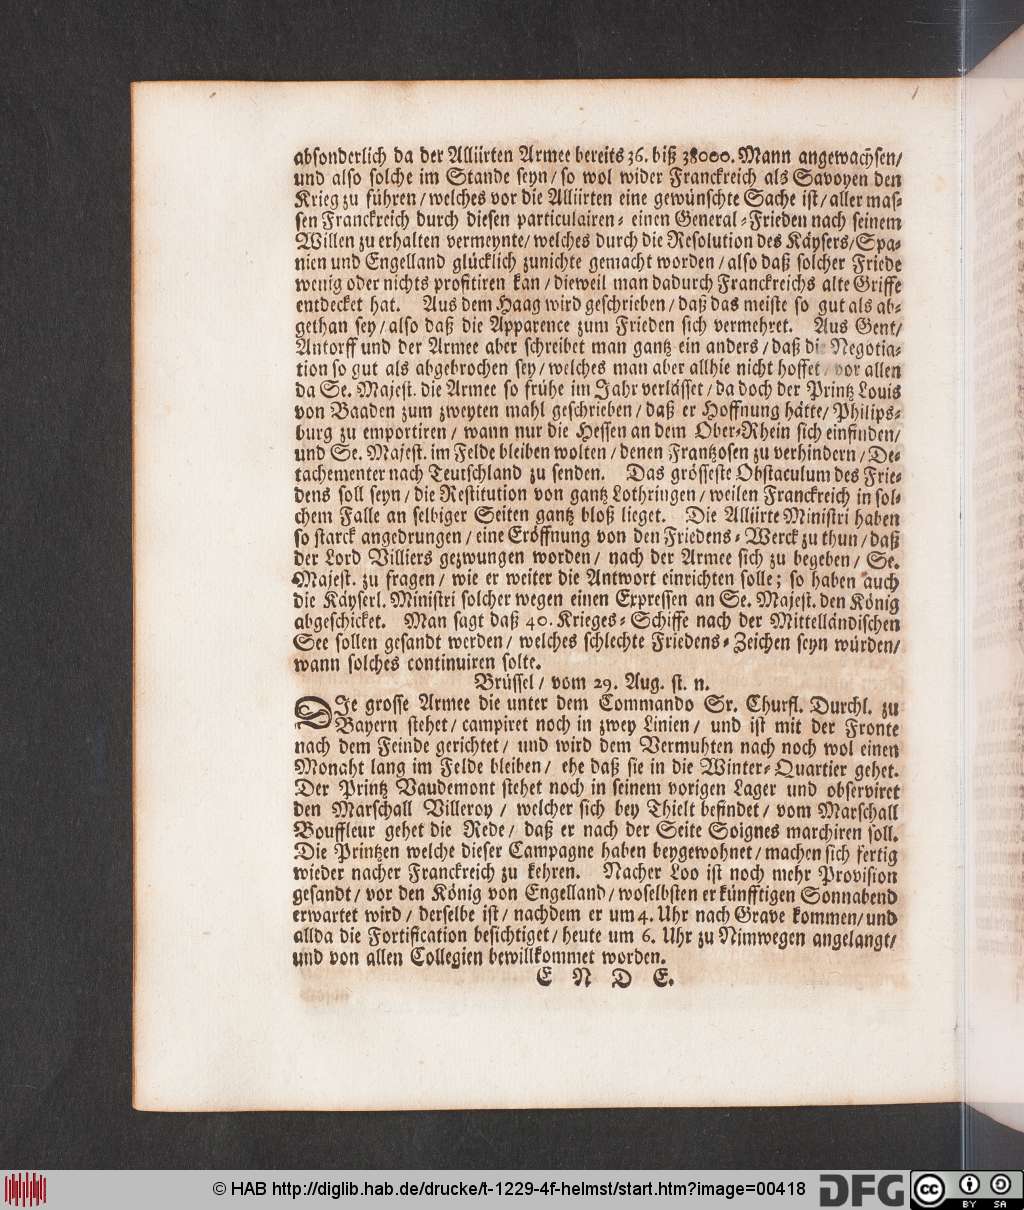 absonderlich da der Alliirten Armee bereits 36. biß 38000. Mann angewachsen/
und also solche im Stande seyn/ so wol wider Franckreich als Savoyen den
Krieg zu führen/ welches vor die Alliirten eine gewünschte Sache ist/ aller mas-
sen Franckreich durch diesen particulairen- einen General-Frieden nach seinem
Willen zu erhalten vermeynte/ welches durch die Resolution des Käysers/ Spa-
nien und Engelland glücklich zunichte gemacht worden/ also daß solcher Friede
wenig oder nichts profitiren kan/ dieweil man dadurch Franckreichs alte Griffe
entdecket hat. Aus dem Haag wird geschrieben/ daß das meiste so gut als ab-
gethan sey/ also daß die Apparence zum Frieden sich vermehret. Aus Gent/
Antorff und der Armee aber schreibet man gantz ein anders/ daß die Negotia-
tion so gut als abgebrochen sey/ welches man aber allhie nicht hoffet/ vor allen
da Se. Majest. die Armee so frühe im Jahr verlässet/ da doch der Printz Louis
von Baaden zum zweyten mahl geschrieben/ daß er Hoffnung hätte/ Philips-
burg zu emportiren/ wann nur die Hessen an dem Ober-Rhein sich einfinden/
und Se. Majest. im Felde bleiben wolten/ denen Frantzosen zu verhindern/ De-
tachementer nach Teutschland zu senden. Das grösseste Obstaculum des Frie-
dens soll seyn/ die Restitution von gantz Lothringen/ weilen Franckreich in sol-
chem Falle an selbiger Seiten gantz bloß lieget. Die Alliirte Ministri haben
so starck angedrungen/ eine Eröffnung von den Friedens-Werck zu thun/ daß
der Lord Villiers gezwungen worden/ nach der Armee sich zu begeben/ Se.
Majest. zu fragen/ wie er weiter die Antwort einrichten solle; so haben auch
die Käyserl. Ministri solcher wegen einen Expressen an Se. Majest. den König
abgeschicket. Man sagt daß 40. Krieges-Schiffe nach der Mittelländischen
See sollen gesandt werden/ welches schlechte Friedens-Zeichen seyn würden/
wann solches continuiren solte.
Brüssel/ vom 29. Aug. st. n.
DIe grosse Armee die unter dem Commando Sr. Churfl. Durchl. zu
Bayern stehet/ campiret noch in zwey Linien/ und ist mit der Fronte
nach dem Feinde gerichtet/ und wird dem Vermuhten nach noch wol einen
Monaht lang im Felde bleiben/ ehe daß sie in die Winter-Quartier gehet.
Der Printz Vaudemont stehet noch in seinem vorigen Lager und observiret
den Marschall Villeroy/ welcher sich bey Thielt befindet/ vom Marschall
Bouffleur gehet die Rede/ daß er nach der Seite Soignes marchiren soll.
Die Printzen welche dieser Campagne haben beygewohnet/ machen sich fertig
wieder nacher Franckreich zu kehren. Nacher Loo ist noch mehr Provision
gesandt/ vor den König von Engelland/ woselbsten er künfftigen Sonnabend
erwartet wird/ derselbe ist/ nachdem er um 4. Uhr nach Grave kommen/ und
allda die Fortification besichtiget/ heute um 6. Uhr zu Nimwegen angelangt/
und von allen Collegien bewillkommet worden.
E N D E.
© HAB http://diglib.hab.de/drucke/t-1229-4f-helmst/start.htm?image=00418
DFG
cc BY SA